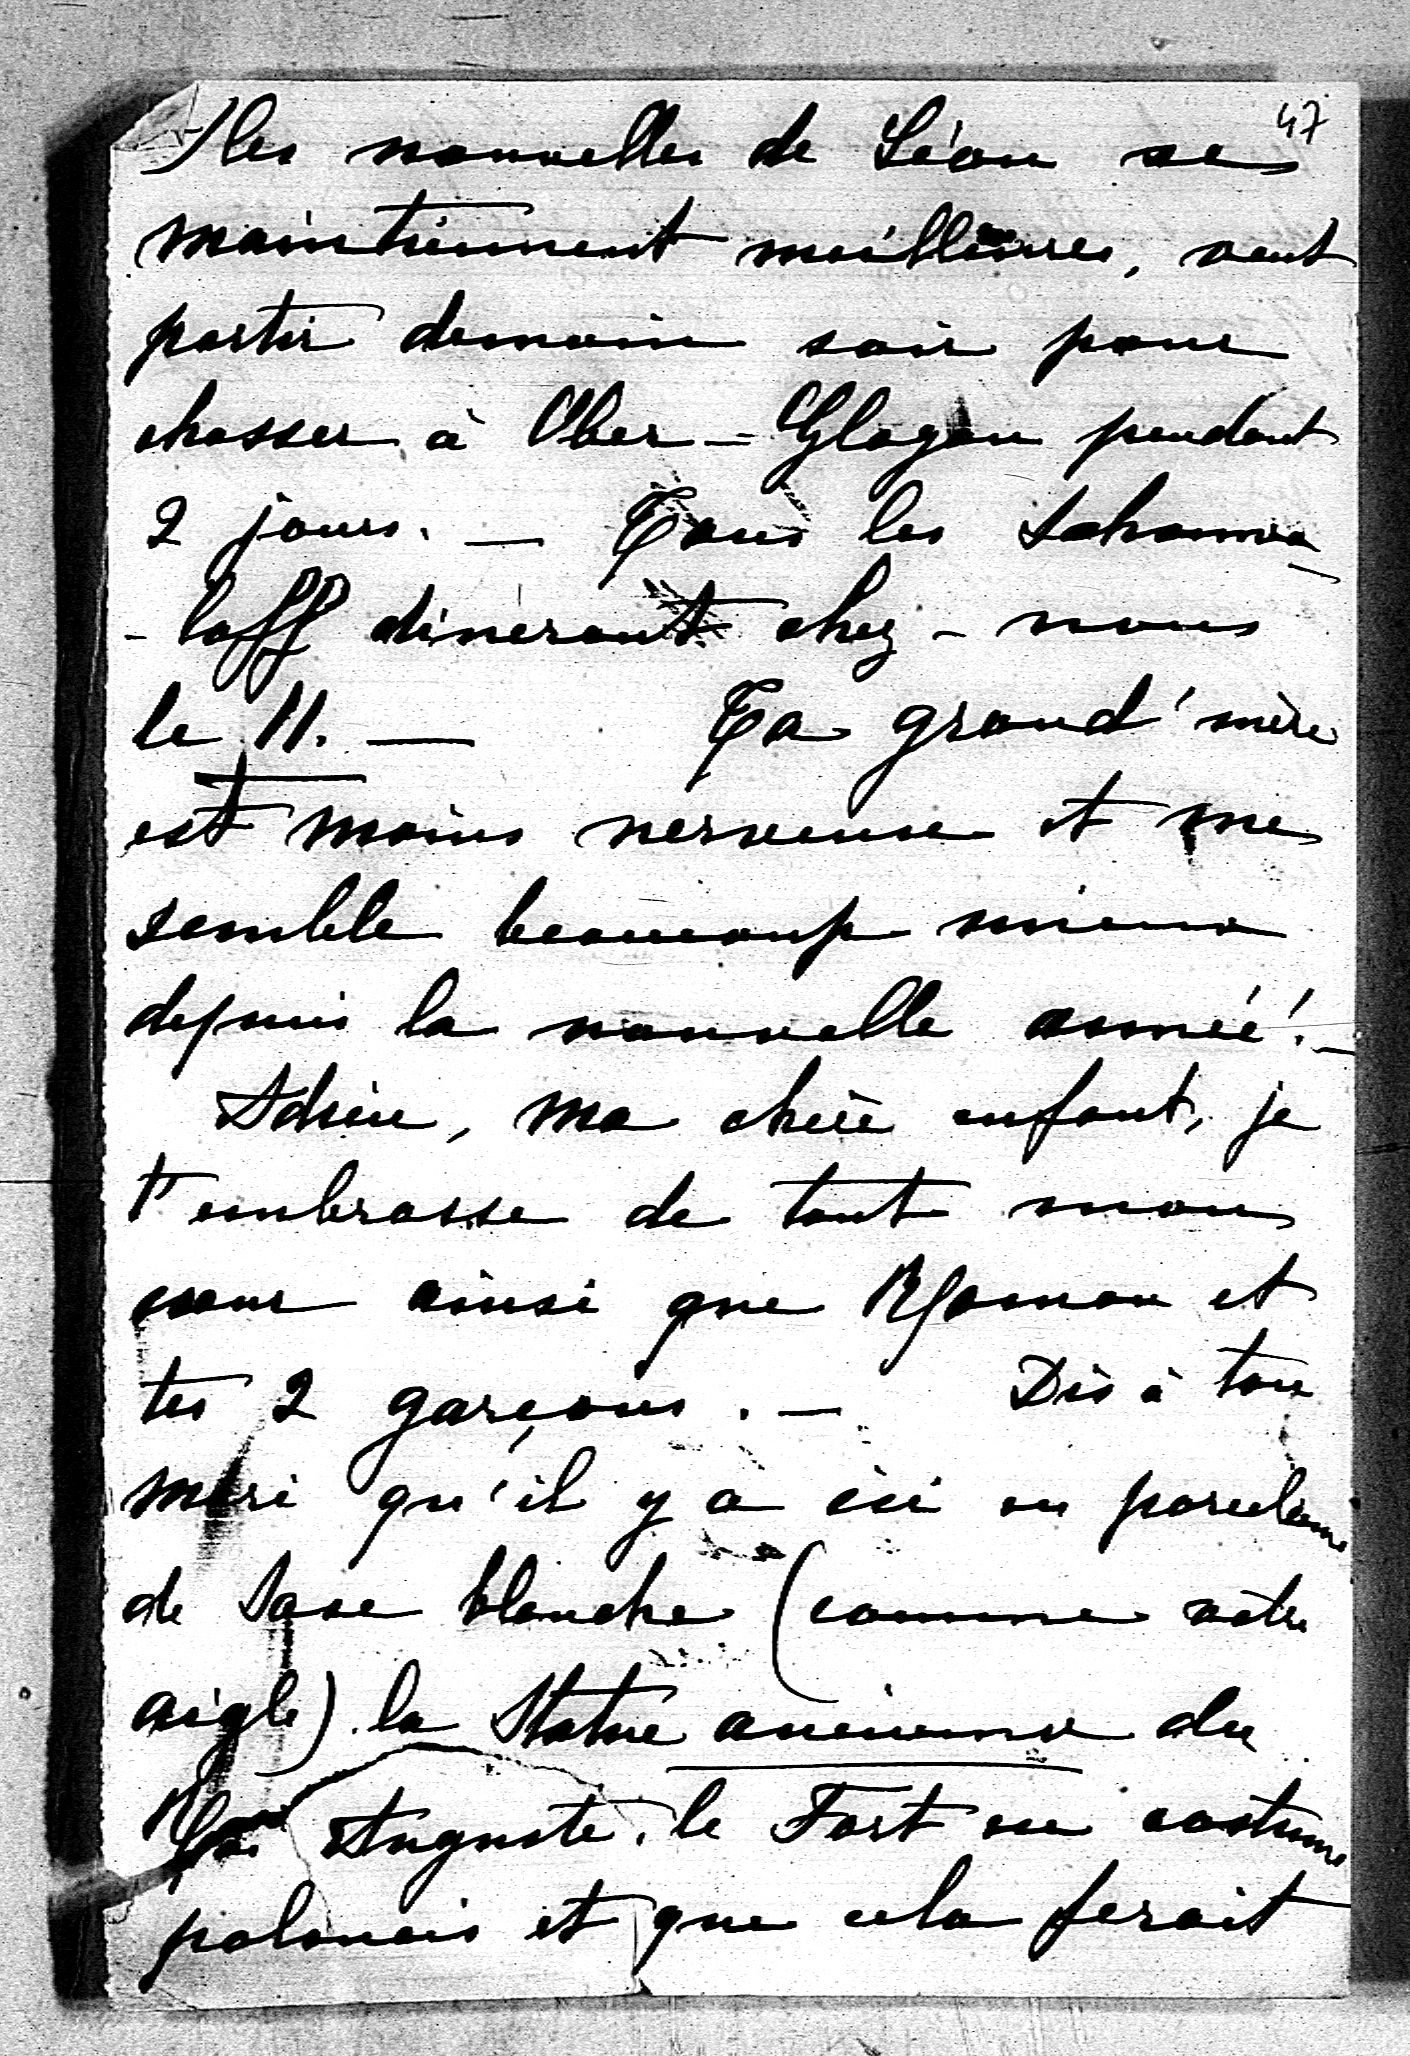 47
les nouvelles de Léon se
maintiennent meilleures, veut
partir demain soir pour
chasser à Ober-Glogau pendant
2 jours. — Tous les Schouwa-
-loff dineront chez-nous
le 11. — Ta grand'mère
est moins nerveuse et me
semble beaucoup mieux
depuis la nouvelle année! —
Adieu, ma chère enfant, je
t'embrasse de tout mon
cœur ainsi que Roman et
tes 2 garçons. — Dis à ton
mari qu'il y a ici en porcelaine
de Saxe blanche (comme votre
aigle) la Statue ancienne du
Roi Auguste le Fort en costume
polonais et que cela ferait